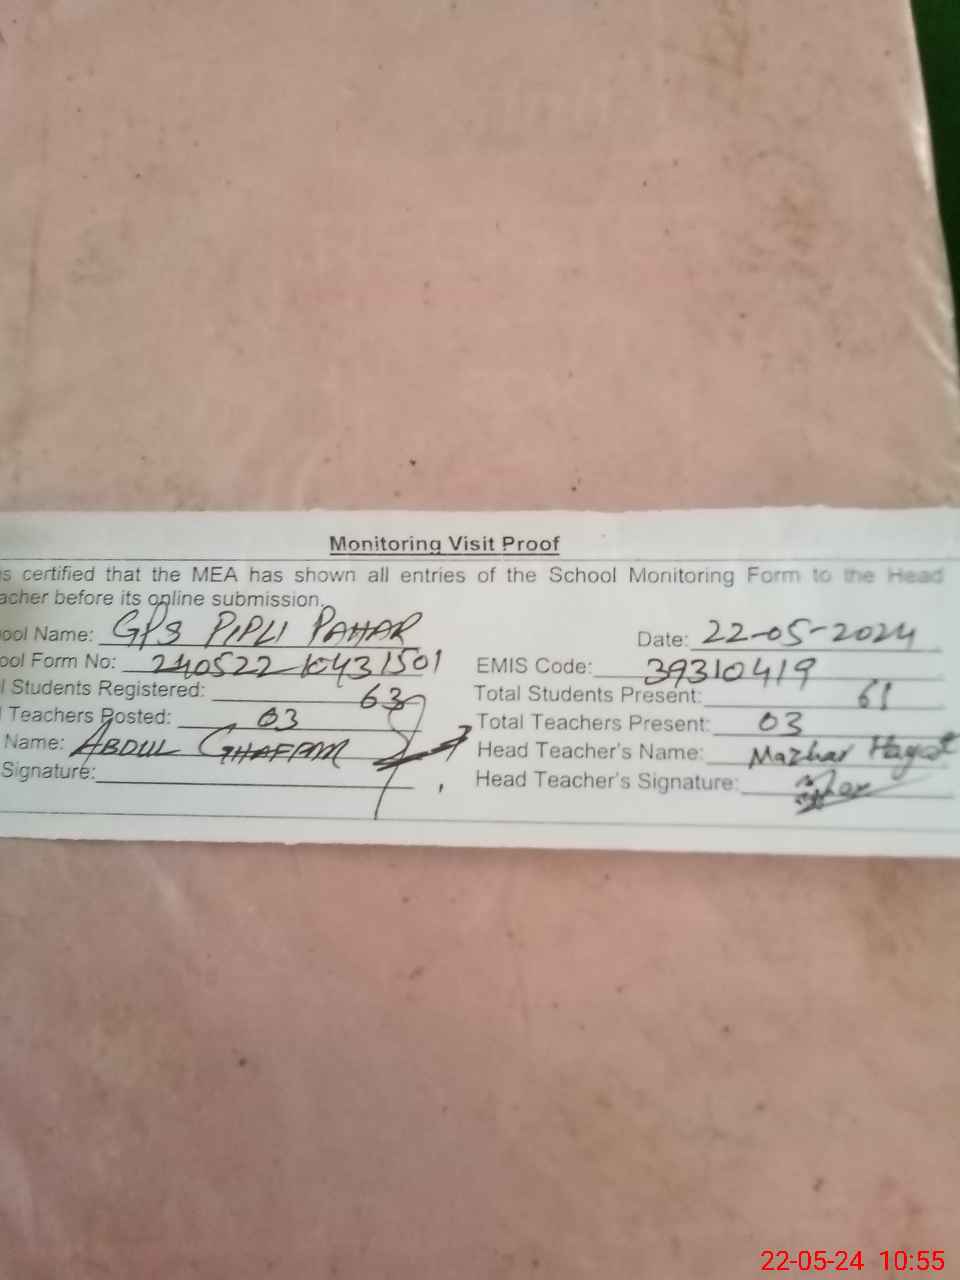 Monitoring Visit Proof
s certified that the MEA has shown all entries of the School Monitoring Form to the Head
acher before its online submission.
ool Name: GPS PIPLI PAHAR Date: 22-05-2024
ool Form No: 240522 10431501 EMIS Code: 39310419
l Students Registered: 63 Total Students Present: 61
Teachers Posted: 03 Total Teachers Present: 03
Name: ABDUL GHAFFAR Head Teacher's Name: Mazhar Hayat
Signature: Head Teacher's Signature:
22-05-24 10:55